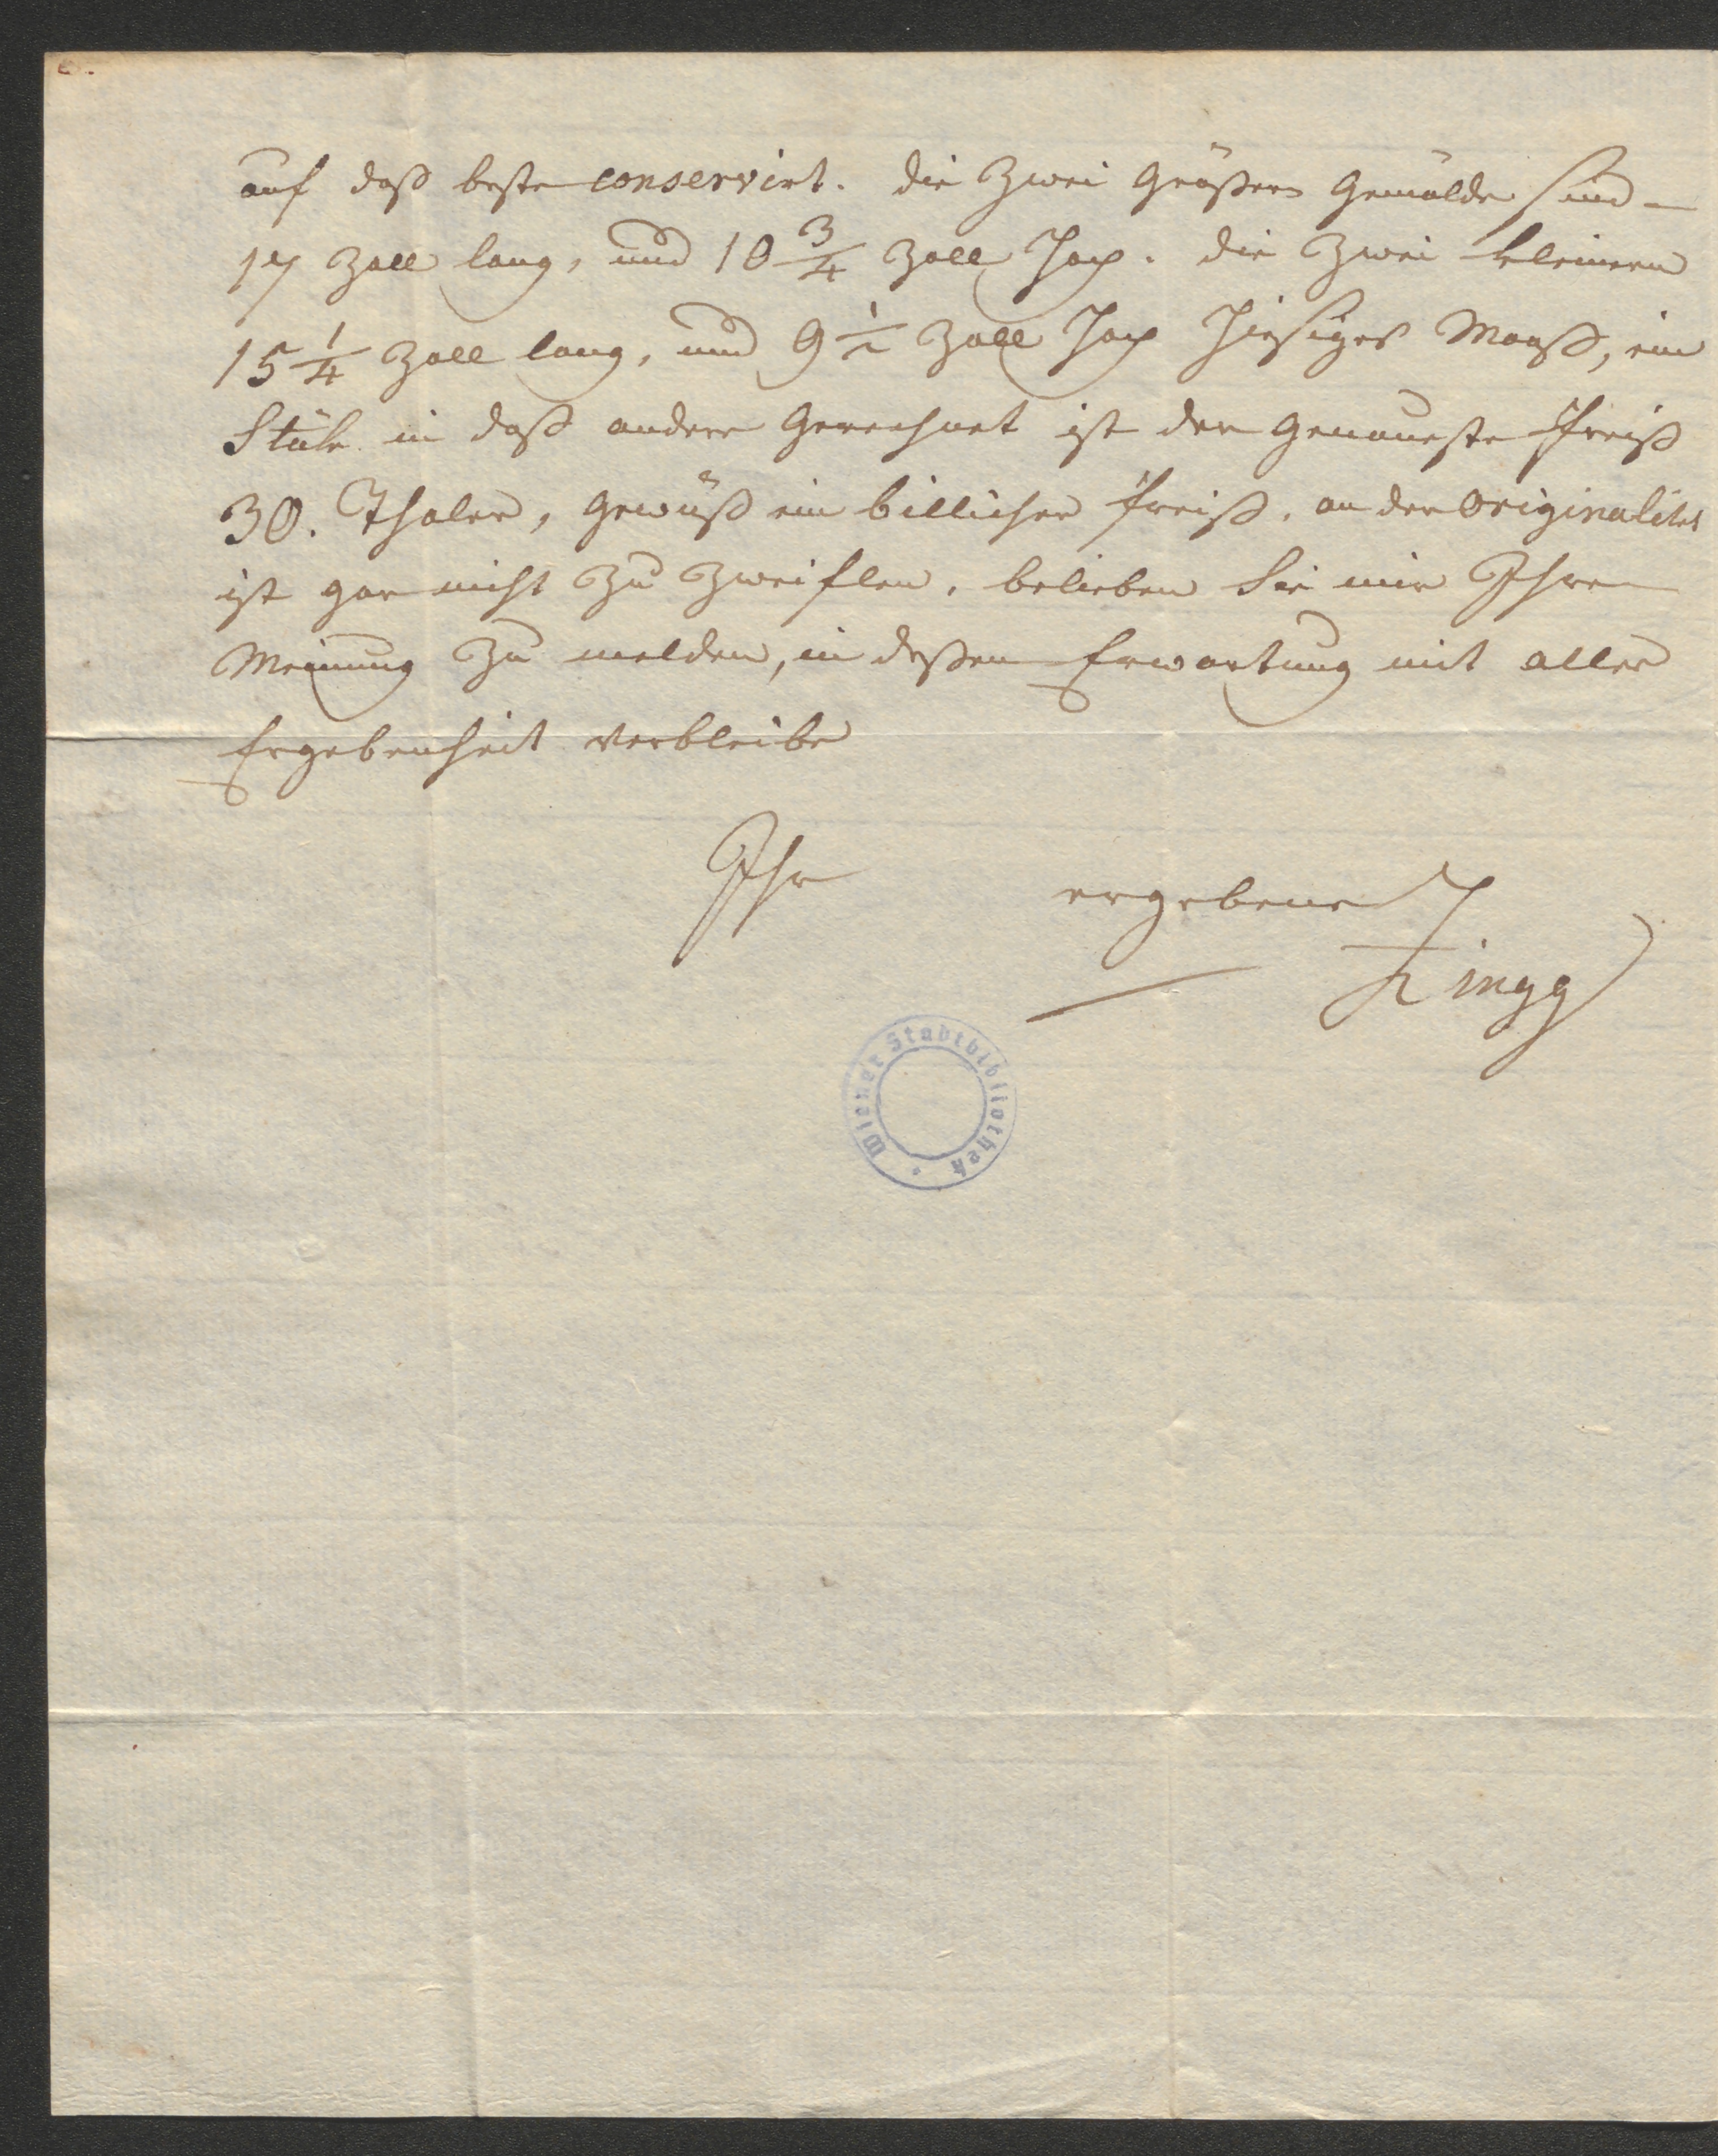 auf daß beste conservirt. die Zwei Größern Gemälde sind
17 Zoll lang, und 10 3/4 Zoll Hoch. die Zwei kleinern
15 1/4 Zoll lang, und 9 1/2 Zoll Hoch hiesiges Maaß, ein
Stük in daß andere Gerechnet ist der Genaueste Preiß
30. Thaler, Gewüß ein billicher Preiß. an der Originalitet
ist gar nicht Zu Zweiflen. belieben Sie mir Ihre
Meinung Zu melden, in deßen Erwartung mit aller
Ergebenheit verbleibe
Ihr ergebener
Zingg
Wiener Stadtbibliothek